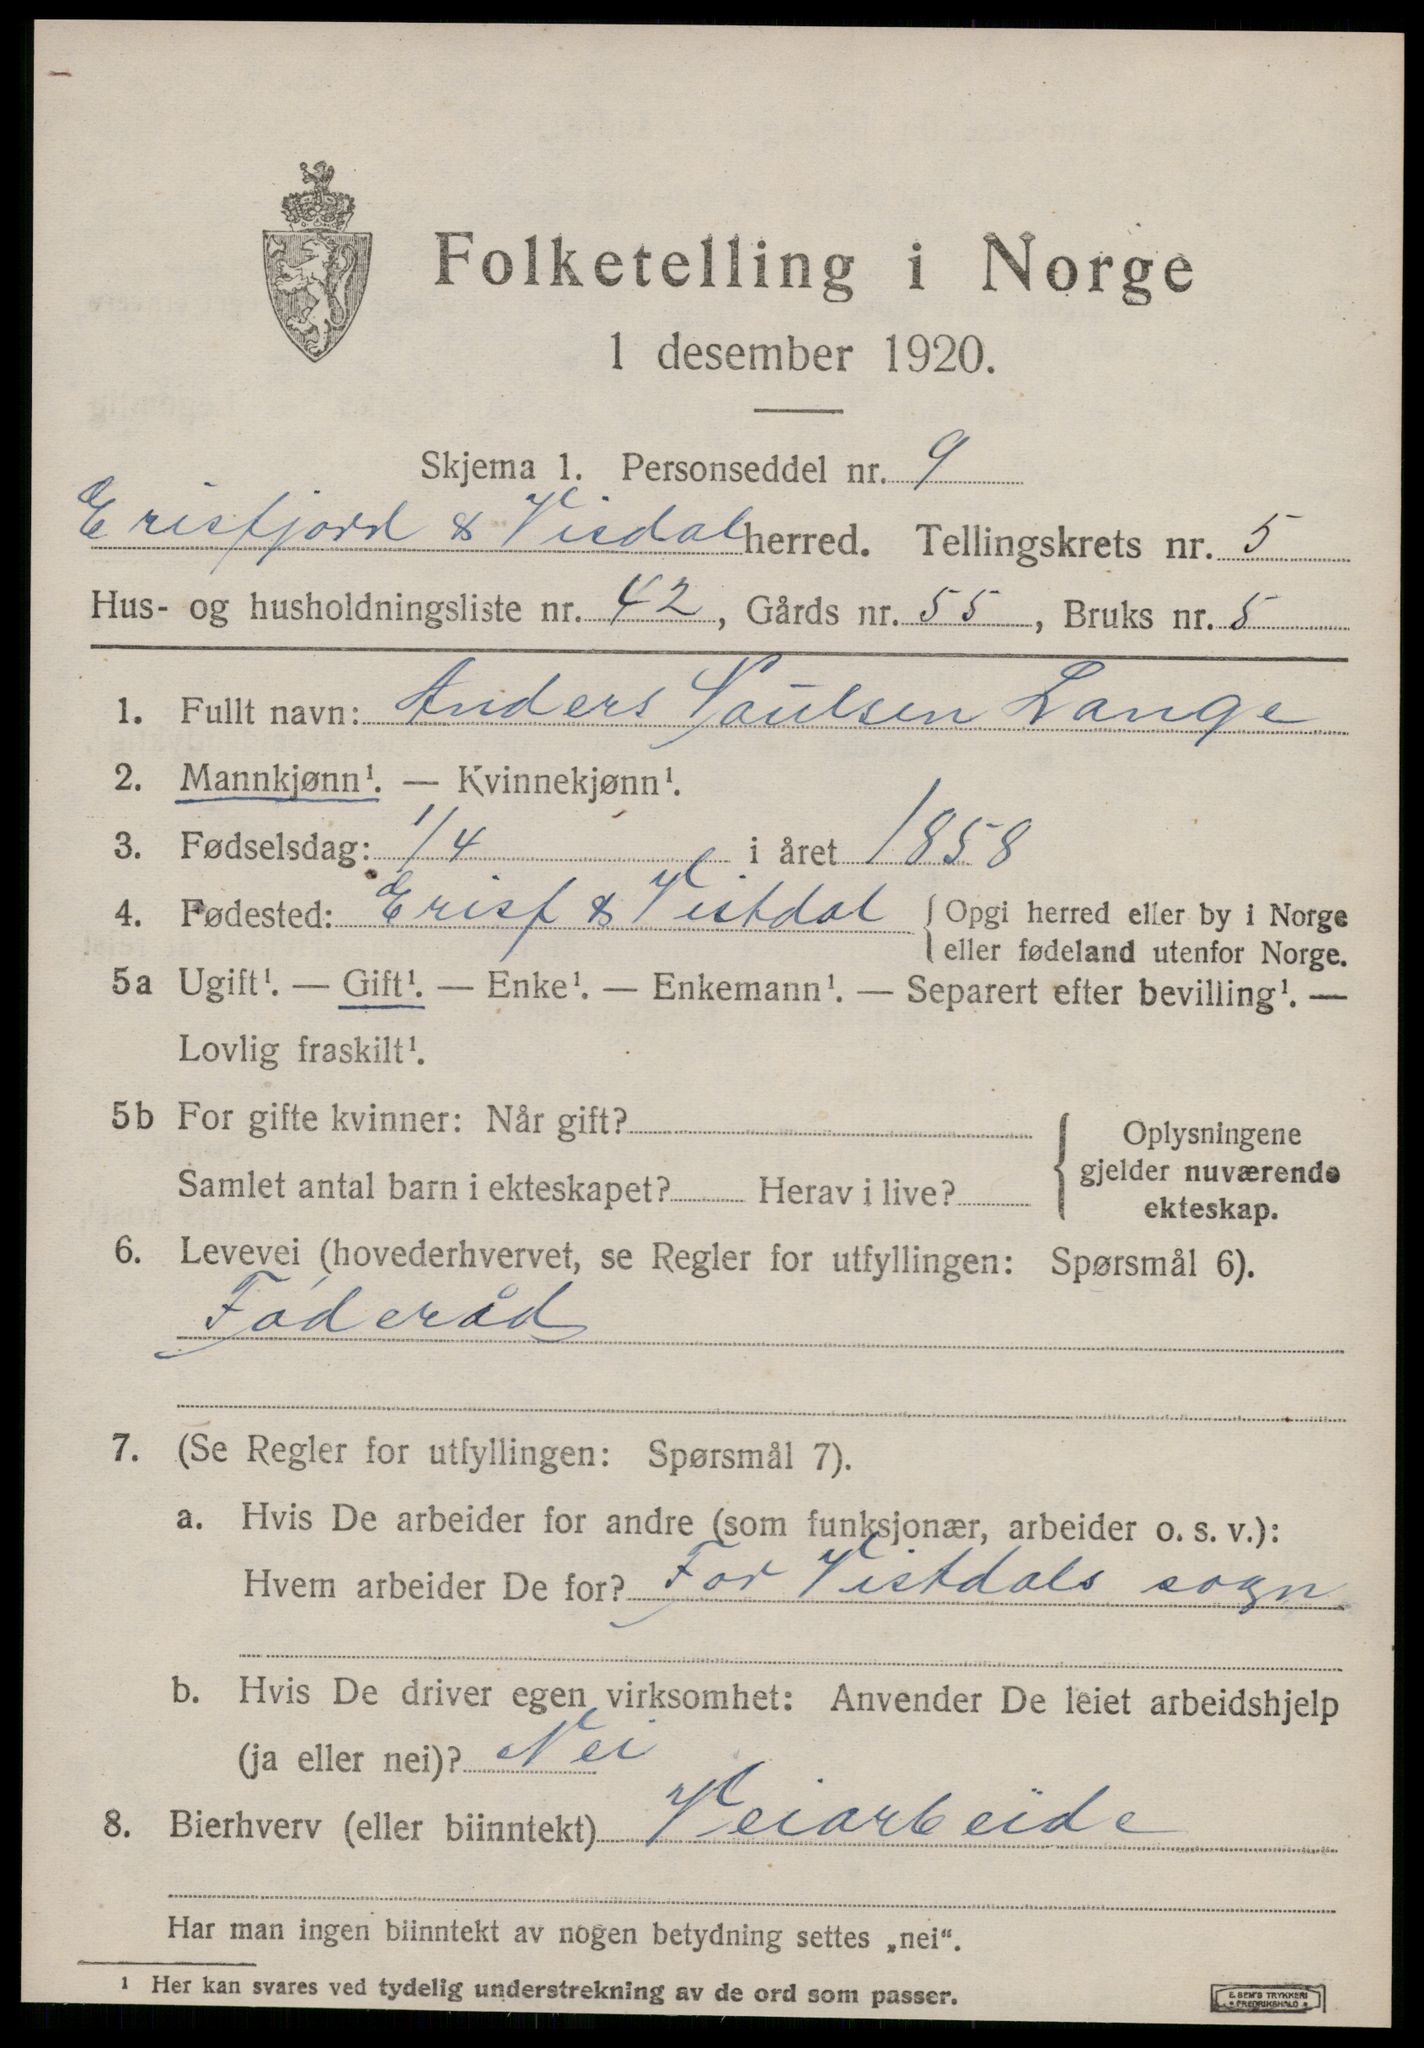 Folketelling i Norge
1 desember 1920.
Skjema 1. Personseddel nr. 9
Erisfjord & Visdal herred. Tellingskrets nr. 5
Hus- og husholdningsliste nr. 42, Gårds nr. 55, Bruks nr. 5
1. Fullt navn: Anders Paulsen Lange
2. Mannkjønn¹. — Kvinnekjønn¹.
3. Fødselsdag: 1/4 i året 1858
4. Fødested: Erisf & Vistdal { Opgi herred eller by i Norge
eller fødeland utenfor Norge.
5a Ugift¹. — Gift¹. — Enke¹. — Enkemann¹. — Separert efter bevilling¹. —
Lovlig fraskilt¹.
5b For gifte kvinner: Når gift?
Samlet antal barn i ekteskapet? Herav i live?
{ Oplysningene
gjelder nuværende
ekteskap.
6. Levevei (hovederhvervet, se Regler for utfyllingen: Spørsmål 6).
Föderåd
7. (Se Regler for utfyllingen: Spørsmål 7).
a. Hvis De arbeider for andre (som funksjonær, arbeider o. s. v.):
Hvem arbeider De for? For Vistdals sogn
b. Hvis De driver egen virksomhet: Anvender De leiet arbeidshjelp
(ja eller nei)? Nei
8. Bierhverv (eller biinntekt) Veiarbeide
Har man ingen biinntekt av nogen betydning settes „nei“.
¹ Her kan svares ved tydelig understrekning av de ord som passer.
E. SEM'S TRYKKERI
• FREDRIKSHALD •